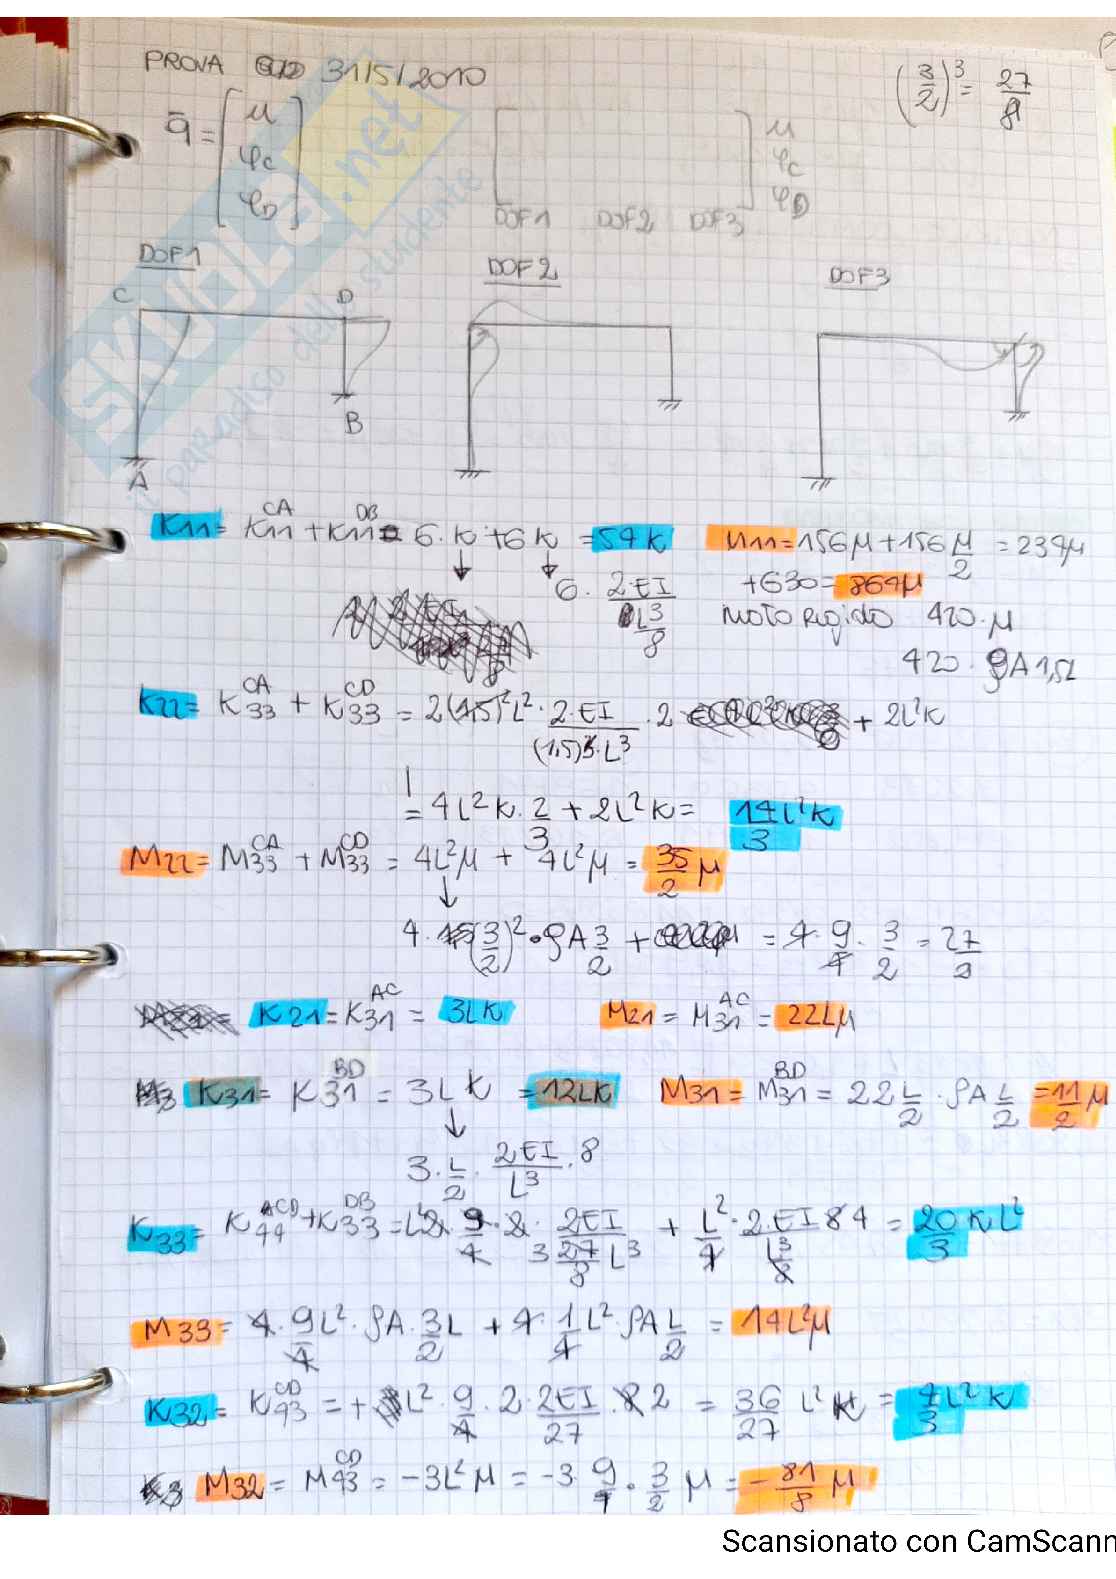 PROVA 31/5/2010
(3/2)^3 = 27/8
q̄ = [μ φC φD]
μ
φC
φD
DOF1 DOF2 DOF3
DOF1
DOF2
DOF3
C D
B
A
SKUOLA.net
il paradiso dello studente
K11 = K11^CA + K11^DB = 6·K + 6K = 54K
M11 = 156μ + 156 μ/2 = 234μ
6· 2·EI / L^3/8
+630 = 864μ
moto rigido 420·μ
420·ρA1,5L
K22 = K33^CA + K33^CD = 2(1,5)^2 L^2 · 2·EI/(1,5)^3·L^3 · 2 + 2L^2K
= 4L^2K · 2/3 + 2L^2K = 14/3 L^2K
M22 = M33^CA + M33^CD = 4L^2μ + 4L^2μ = 35/2 μ
4·(3/2)^2 · ρA 3/2 + = 4·9/4 · 3/2 = 27/2
K21 = K31^AC = 3LK
M21 = M31^AC = 22Lμ
K31 = K31^BD = 3LK = 12LK
M31 = M31^BD = 22 L/2 · ρA L/2 = 11/2 μ
3· L/2 · 2EI/L^3 · 8
K33 = K44^CD + K33^DB = L^2 · 9/4 · 2 · 2EI / 27/8 L^3 + L^2/4 · 2·EI 8 4 / L^3/2 = 20/3 KL^2
M33 = 4·9/4 L^2 · ρA·3/2 L + 4·1/4 L^2 · ρA L/2 = 14L^2μ
K32 = K43^CD = + L^2 · 9/4 · 2 · 2EI/27 · 8 2 = 36/27 L^2 K = 4/3 L^2 K
M32 = M43^CD = -3L^2μ = -3 9/4 · 3/2 μ = -81/8 μ
Scansionato con CamScann